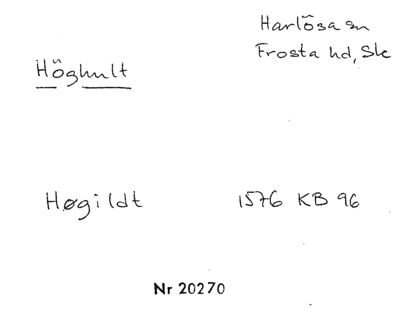 Harlösa sn
Frosta hd, Sk
Höghult
Høgildt 1576 KB 96
Nr 20270